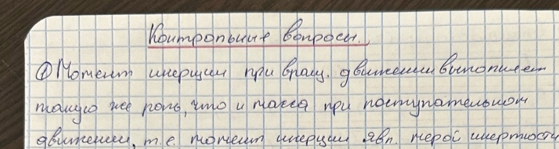 Контрольные вопросы.
① Момент инерции при вращ. движении выполняет
такую же роль, что и масса при поступательном
движении, т.е. момент инерции явл. мерой инертности